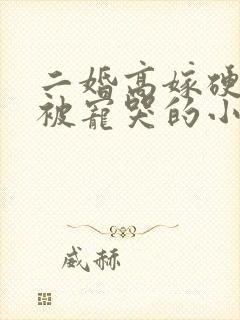 二婚高嫁硬
被宠哭的小
威赫